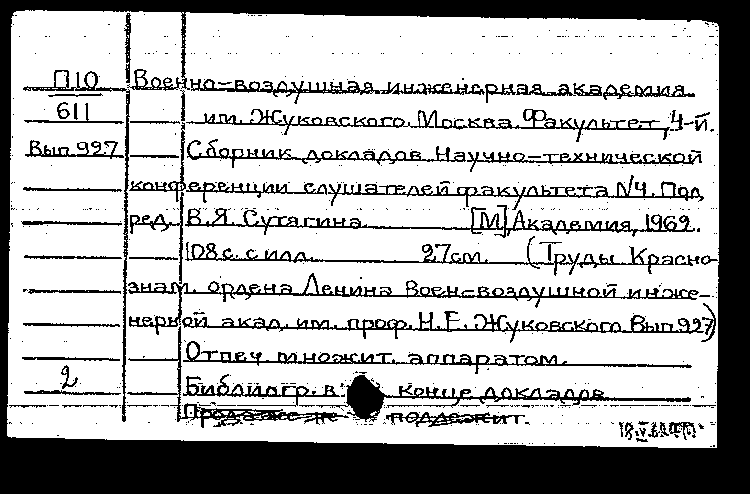 П10 Военно-воздушная инженерная академия
611 им. Жуковского. Москва. Факультет, 4-й.
Вып. 927 Сборник докладов Научно-технической
конференции слушателей факультета N4. Под
ред. В.Я. Сутягина [М], Академия, 1962.
108 с. с илл. 27 см. (Труды Красно-
знам. ордена Ленина Воен-воздушной инже-
нерной акад. им. проф. Н.Е. Жуковского. Вып 927)
Отпеч. множит. аппаратом.
2 Библиогр. в конце докладов
Продаже не подлежит.